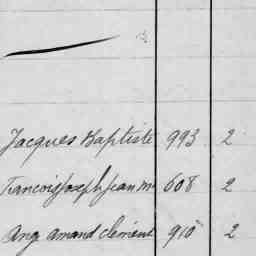 Jacques Baptiste 993 2
François Joseph Jean M 608 2
Ang amand clement 910 2